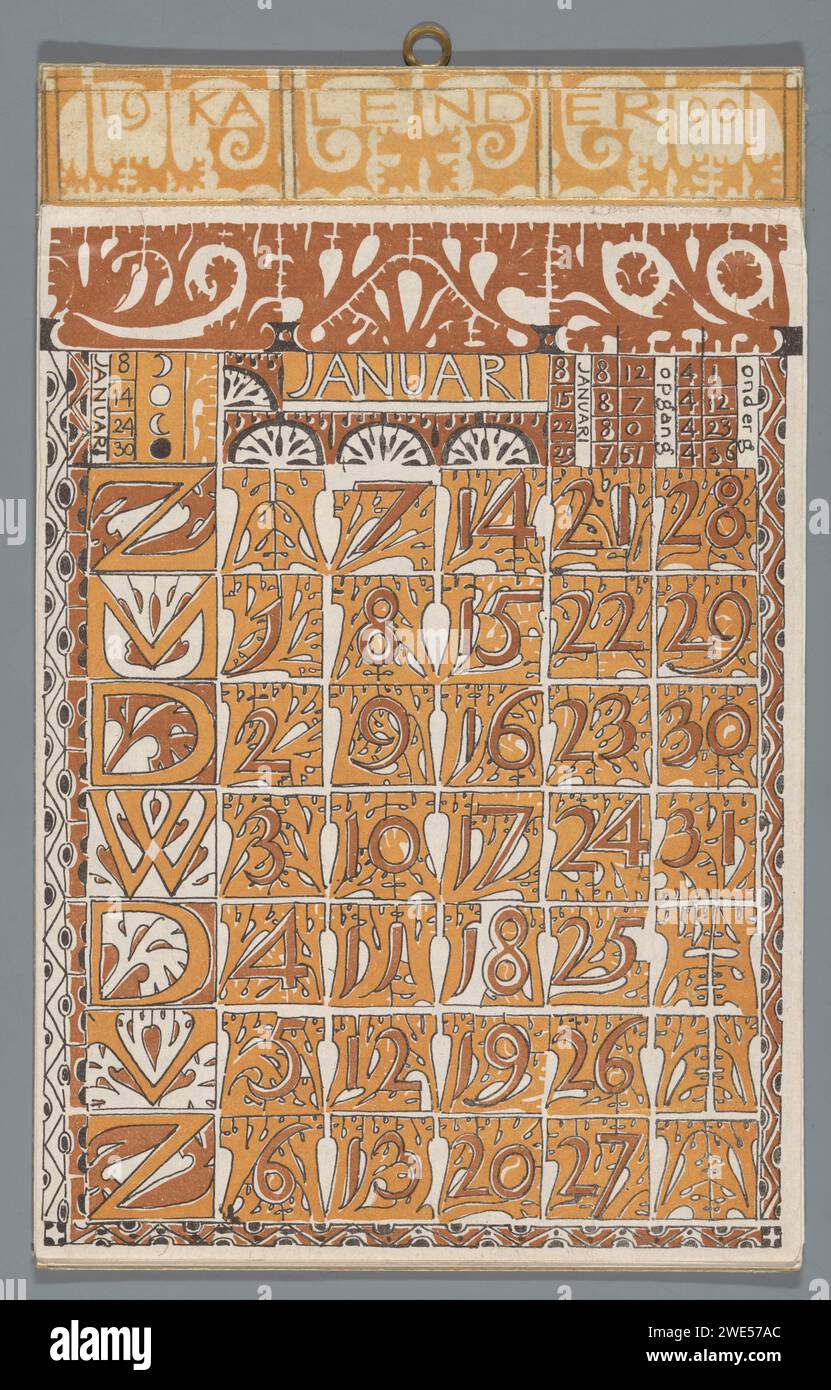 19 KALENDER 00
JANUARI
JANUARI 8 14 24 30
JANUARI 8 15 22 29
opgang 8 12 8 7 8 0 7 51
onderg 4 1 4 12 4 23 4 36
Z 7 14 21 28
M 1 8 15 22 29
D 2 9 16 23 30
W 3 10 17 24 31
D 4 11 18 25
V 5 12 19 26
Z 6 13 20 27
alamy
alamy
Image ID: 2WE57AC
www.alamy.com